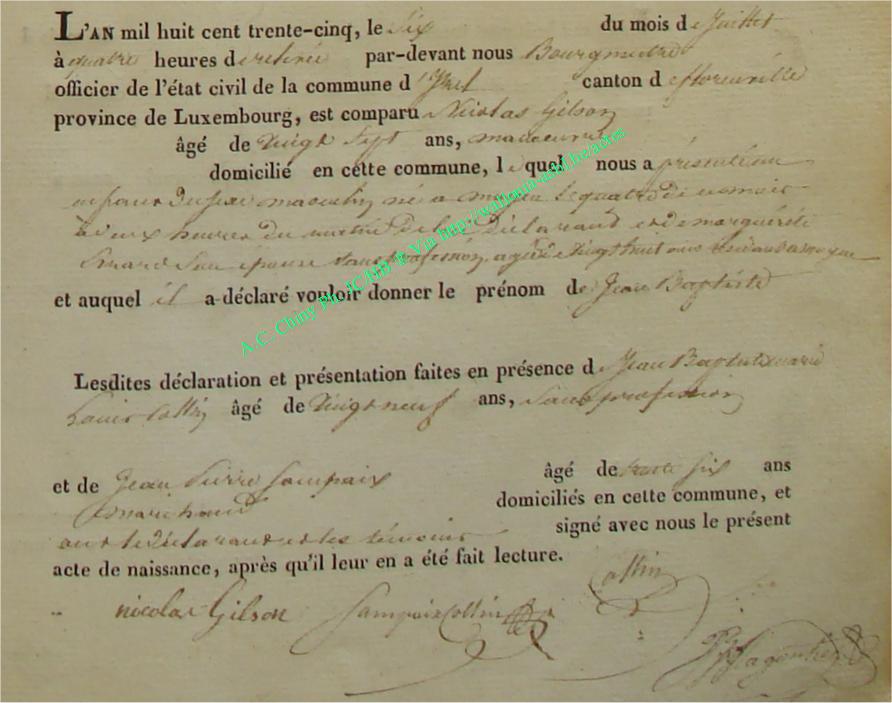 L'AN mil huit cent trente-cinq, le six du mois de Juillet
à quatre heures de relevée par-devant nous Bourgmestre
officier de l'état civil de la commune d' canton de florenville
province de Luxembourg, est comparu Nicolas Gilson
âgé de vingt sept ans, manoeuvre
domicilié en cette commune, lequel nous a présenté un
enfant du sexe masculin né a moyen le quatre de ce mois
a deux heures du matin de lui Déclarant et de marguérite
son épouse sans profession agée de vingt huit ans
et auquel il a déclaré vouloir donner le prénom de Jean Baptiste
Lesdites déclaration et présentation faites en présence de Jean Baptiste marie
Louis Collin âgé de vingt neuf ans, sans profession
et de Jean Pierre Lampaix âgé de trente six ans
marchand domiciliés en cette commune, et
ont le déclarant et les témoins signé avec nous le présent
acte de naissance, après qu'il leur en a été fait lecture.
nicolas Gilson Lampaix Collin Collin
A.C. Chiny Ph. JCMB & Via http://wallonia-asbl.be/actes